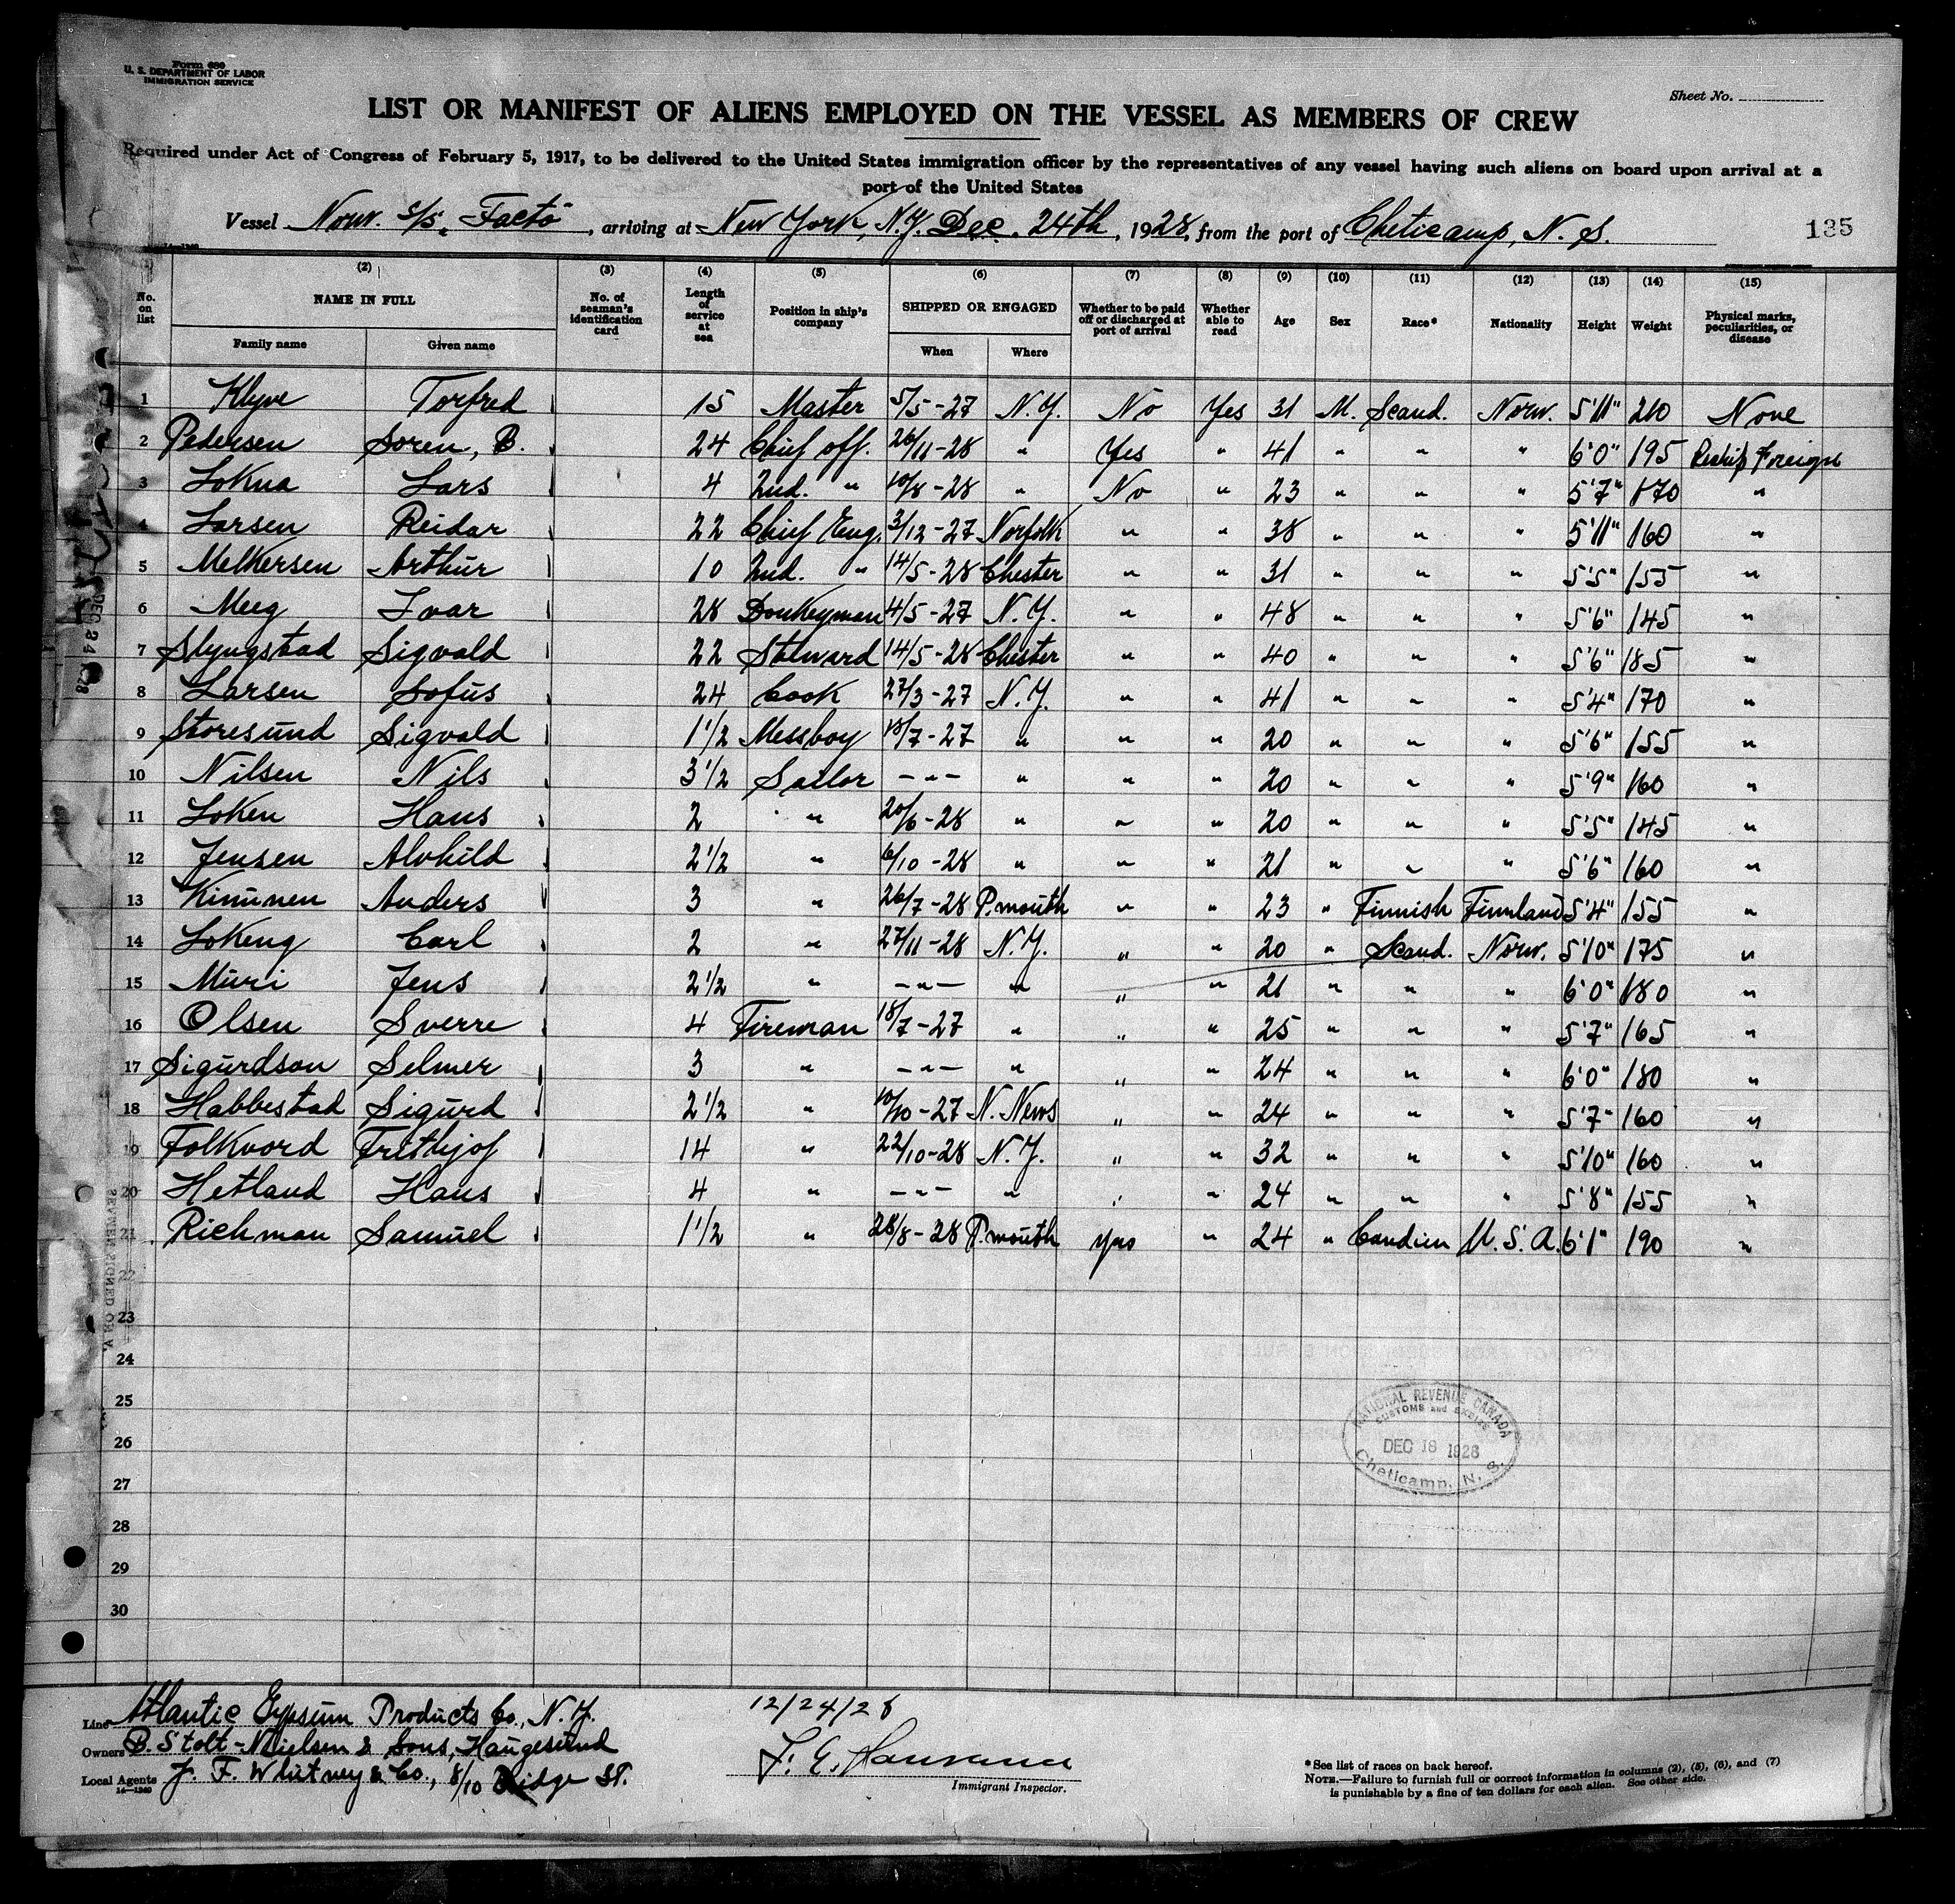 Form 689
U. S. DEPARTMENT OF LABOR
IMMIGRATION SERVICE
Sheet No.
LIST OR MANIFEST OF ALIENS EMPLOYED ON THE VESSEL AS MEMBERS OF CREW
Required under Act of Congress of February 5, 1917, to be delivered to the United States immigration officer by the representatives of any vessel having such aliens on board upon arrival at a
port of the United States
Vessel Norw. S/S. Facto, arriving at New York, N.Y. Dec. 24th, 1928, from the port of Cheticamp, N. S.
135
(1) (2) (3) (4) (5) (6) (7) (8) (9) (10) (11) (12) (13) (14) (15)
No. on list NAME IN FULL No. of seaman's identification card Length of service at sea Position in ship's company SHIPPED OR ENGAGED Whether to be paid off or discharged at port of arrival Whether able to read Age Sex Race* Nationality Height Weight Physical marks, peculiarities, or disease
Family name Given name When Where
1 Klyve Torfred 15 Master 5/5-27 N.Y. No Yes 31 M. Scand. Norw. 5'11" 210 None
2 Pedersen Soren, B. 24 Chief off. 26/11-28 " Yes " 41 " " " 6'0" 195 Reship Foreign
3 Lokna Lars 4 2nd. " 10/8-28 " No " 23 " " " 5'7" 170 "
4 Larsen Reidar 22 Chief Eng. 3/12-27 Norfolk " " 38 " " " 5'11" 160 "
5 Melkersen Arthur 10 2nd. " 14/5-28 Chester " " 31 " " " 5'5" 155 "
6 Meeg Ivar 28 Donkeyman 4/5-27 N.Y. " " 48 " " " 5'6" 145 "
7 Slyngstad Sigvald 22 Steward 14/5-28 Chester " " 40 " " " 5'6" 185 "
8 Larsen Sofus 24 Cook 27/3-27 N.Y. " " 41 " " " 5'4" 170 "
9 Storesund Sigvald 1 1/2 Messboy 18/7-27 " " " 20 " " " 5'6" 155 "
10 Nilsen Nils 3 1/2 Sailor -"- " " " 20 " " " 5'9" 160 "
11 Loken Hans 2 " 20/6-28 " " " 20 " " " 5'5" 145 "
12 Jensen Alvhild 2 1/2 " 6/10-28 " " " 21 " " " 5'6" 160 "
13 Kinunen Anders 3 " 26/7-28 P.mouth " " 23 " Finnish Finnland 5'4" 155 "
14 Lokeng Carl 2 " 27/11-28 N.Y. " " 20 " Scand. Norw. 5'10" 175 "
15 Muri Jens 2 1/2 " -"- " " " 21 " " " 6'0" 180 "
16 Olsen Sverre 4 Fireman 18/7-27 " " " 25 " " " 5'7" 165 "
17 Sigurdson Selmer 3 " -"- " " " 24 " " " 6'0" 180 "
18 Habbestad Sigurd 2 1/2 " 10/10-27 N. News " " 24 " " " 5'7" 160 "
19 Folkvord Frithjof 14 " 22/10-28 N.Y. " " 32 " " " 5'10" 160 "
20 Hetland Hans 4 " -"- " " " 24 " " " 5'8" 155 "
21 Richman Samuel 1 1/2 " 28/8-28 P.mouth Yes " 24 " Candien U.S.A. 6'1" 190 "
22
23
24
25
26
27
28
29
30
DEC 24 1928
NATIONAL REVENUE CANADA
CUSTOMS and EXCISE
DEC 18 1928
Cheticamp, N. S.
Line Atlantic Gypsum Products Co., N.Y.
Owners B. Stolt-Nielsen & Sons, Haugesund
Local Agents J. F. Whitney & Co., 8/10 Bridge St.
14-1240
12/24/28
Immigrant Inspector.
*See list of races on back hereof.
NOTE.—Failure to furnish full or correct information in columns (2), (5), (6), and (7)
is punishable by a fine of ten dollars for each alien. See other side.